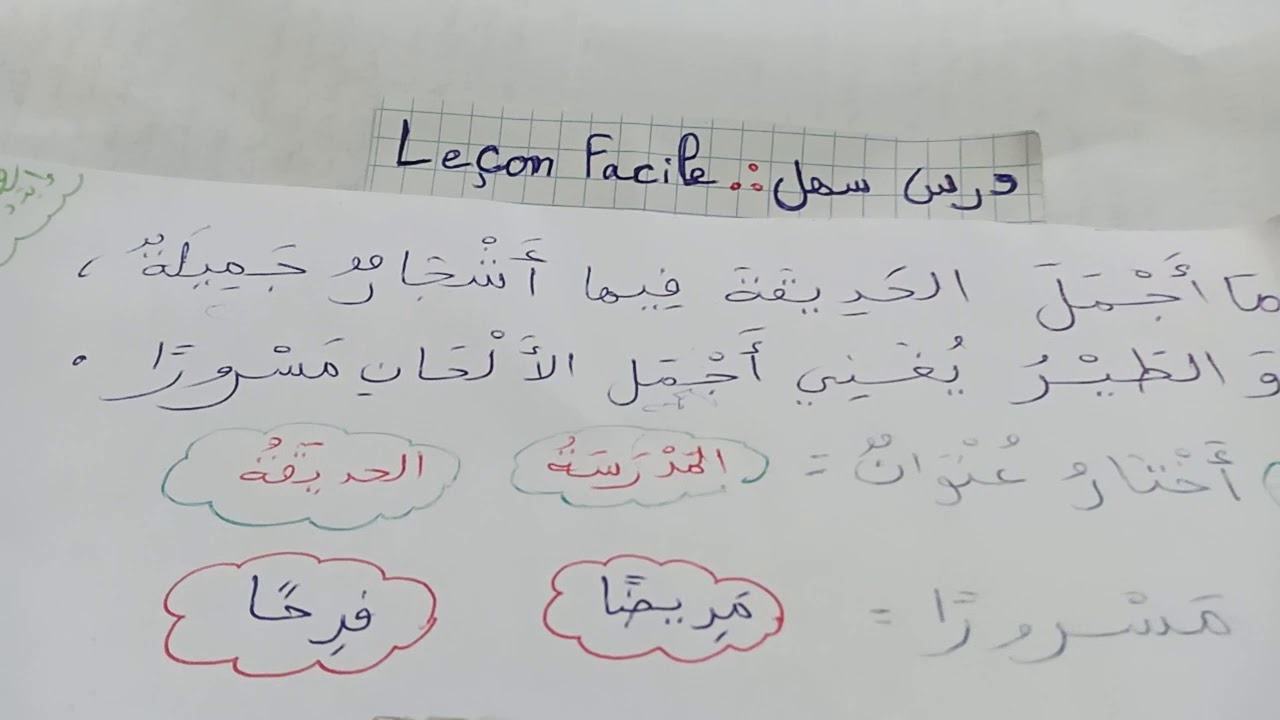 Leçon Facile ∴ درس سهل
مَا أَجْمَلَ الحَدِيقَةَ فِيها أَشْجَارٌ جَمِيلَةٌ ،
وَ الطَيْرُ يُغَنِي أَجْمَل الأَلْحَانِ مَسْرورًا .
أَخْتَارُ عُنْوَانٌ = المَدْرَسَةُ الحديقَةُ
مَسْرورًا = مَرِيضًا فرِحًا